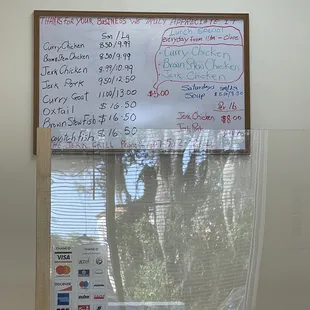 THANKS FOR YOUR BUSINESS WE TRULY APPRECIATE IT
Sm / Lg
Curry Chicken 8.50/9.99
Brown Stew Chicken 8.50/9.99
Jerk Chicken 8.99/10.99
Jerk Pork 9.50/12.50
Curry Goat 11.00/13.00
Oxtail $16.50
Brown Stew Fish $16.50
Escovitch Fish $16.50
Lunch Special
Everyday from 11AM - Close
Curry Chicken
Brown Stew Chicken
Jerk Chicken
$5.00
Saturdays Sm/Lg
Soup
Per lb
Jerk Chicken $8.00
Jerk Pork
JERK GRILL
VISA